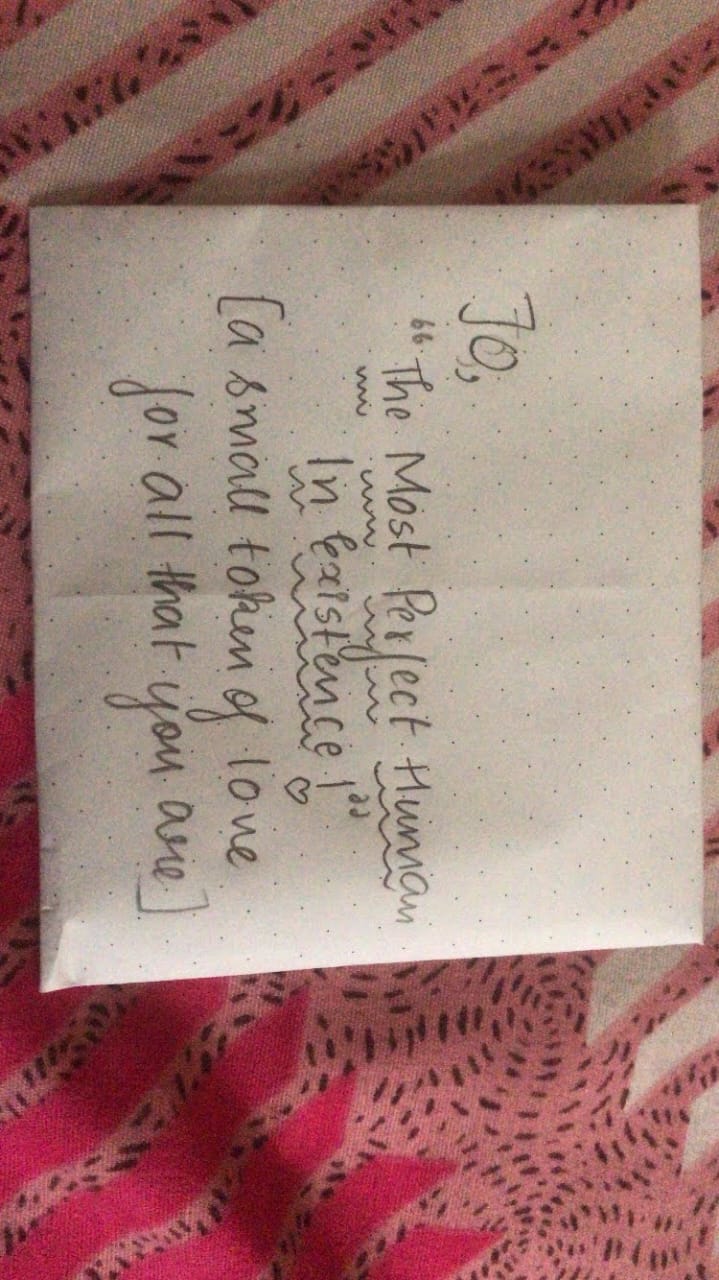 To,
"The Most Perfect Human
In Existence!" ♡
[a small token of love
for all that you are]